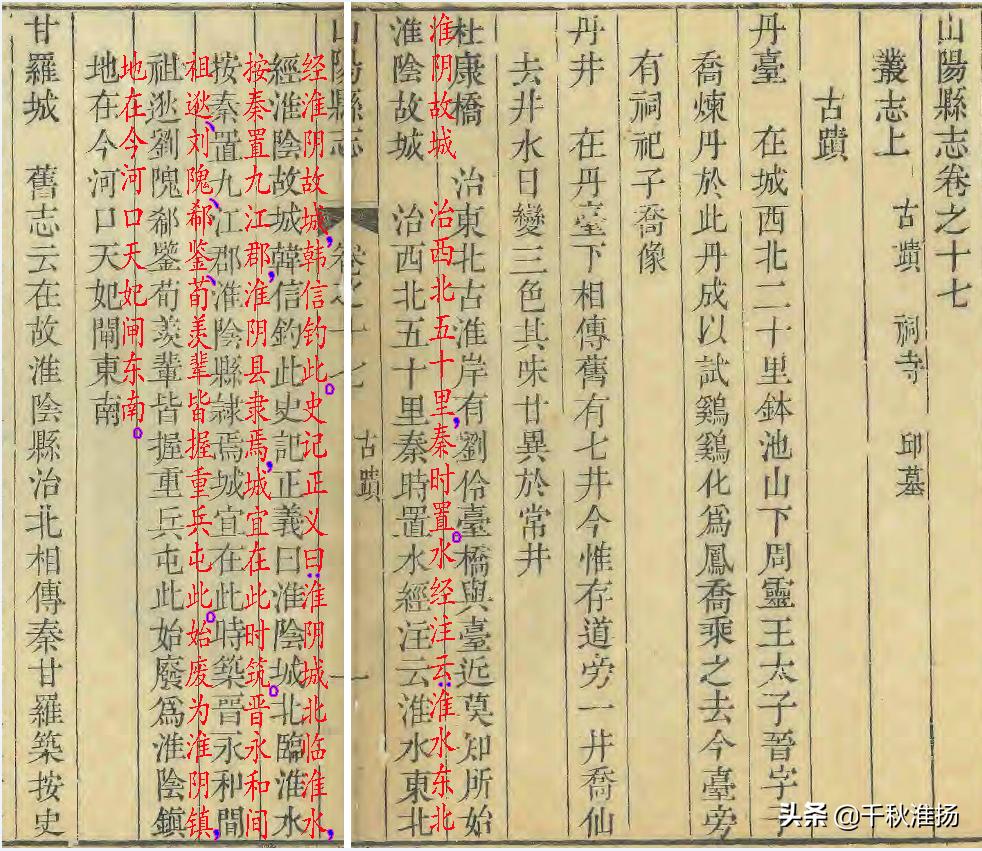 山陽縣志卷之十七
叢志上 古蹟 祠寺 邱墓
古蹟
丹臺 在城西北二十里鉢池山下周靈王太子晉字子
喬煉丹於此丹成以試鷄鷄化爲鳳喬乘之去今臺旁
有祠祀子喬像
丹井 在丹臺下相傳舊有七井今惟存道旁一井喬仙
去井水日變三色其味甘異於常井
杜康橋 治東北古淮岸有劉伶臺橋與臺近莫知所始
淮阴故城 治西北五十里,秦时置。水经注云:淮水东北
淮陰故城 治西北五十里秦時置水經注云淮水東北
山陽縣志 卷之十七 古蹟 一
经淮阴故城,韩信钓此。史记正义曰:淮阴城北临淮水,
經淮陰故城韓信釣此史記正義曰淮陰城北臨淮水
按秦置九江郡,淮阴县隶焉,城宜在此时筑。晋永和间
按秦置九江郡淮陰縣隸焉城宜在此時築晉永和間
祖逖、刘隗、郗鉴、荀羡辈皆握重兵屯此。始废为淮阴镇,
祖逖劉隗郗鑒荀羨輩皆握重兵屯此始廢爲淮陰鎮
地在今河口天妃闸东南。
地在今河口天妃閘東南
甘羅城 舊志云在故淮陰縣治北相傳秦甘羅築按史
头条 @千秋淮扬